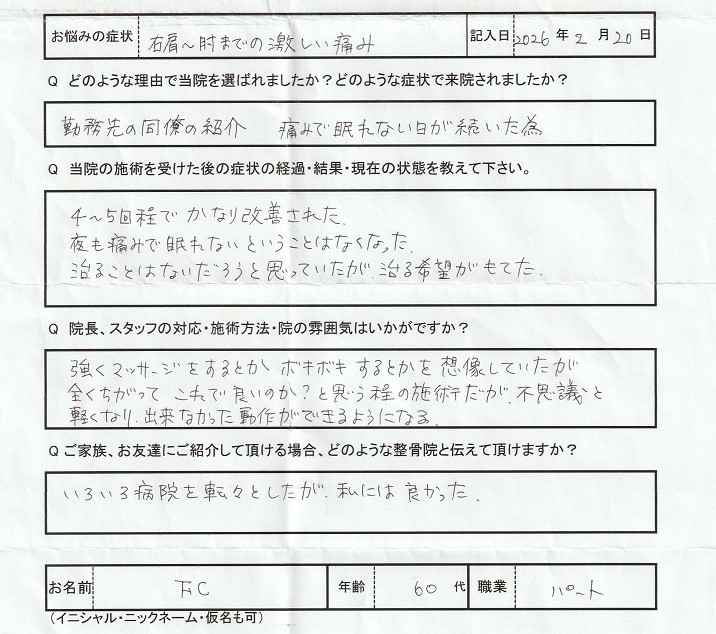 お悩みの症状 右肩～肘までの激しい痛み 記入日 2026 年 2 月 20 日
Q どのような理由で当院を選ばれましたか？どのような症状で来院されましたか？
勤務先の同僚の紹介 痛みで眠れない日が続いた為
Q 当院の施術を受けた後の症状の経過・結果・現在の状態を教えて下さい。
4～5回程で かなり改善された.
夜も痛みで眠れないということはなくなった.
治ることはないだろうと思っていたが.治る希望がもてた.
Q 院長、スタッフの対応・施術方法・院の雰囲気はいかがですか？
強くマッサージをするとか ボキボキ するとかを 想像していたが
全くちがって これで良いのか？と思う程の施術だが.不思議と
軽くなり.出来なかった動作ができるようになる.
Q ご家族、お友達にご紹介して頂ける場合、どのような整骨院と伝えて頂けますか？
いろいろ病院を転々としたが.私には良かった.
お名前 C 年齢 60 代 職業 パート
（イニシャル・ニックネーム・仮名も可）